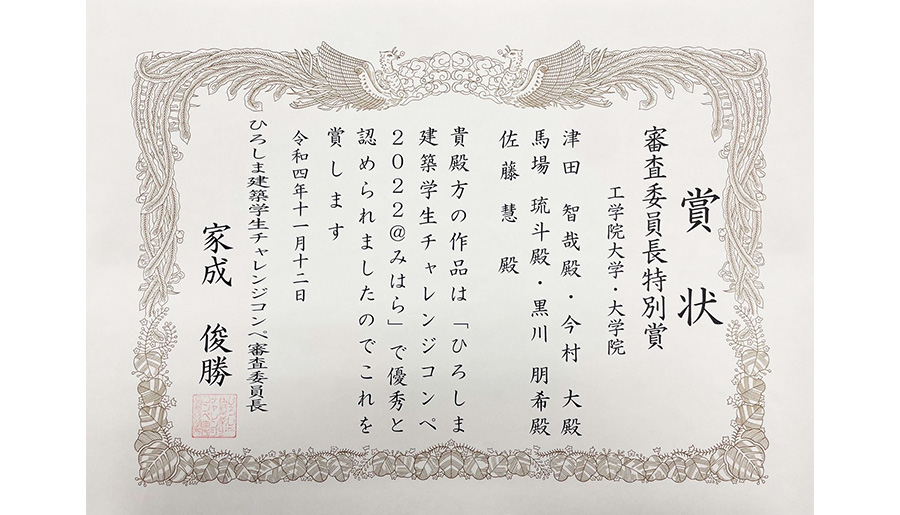 賞状
審査委員長特別賞
工学院大学・大学院
津田 智哉殿・今村 大殿
馬場 琉斗殿・黒川 朋希殿
佐藤 慧 殿
貴殿方の作品は「ひろしま
建築学生チャレンジコンペ
2022@みはら」で優秀と
認められましたのでこれを
賞します
令和四年十一月十二日
ひろしま建築学生チャレンジコンペ審査委員長
家成 俊勝